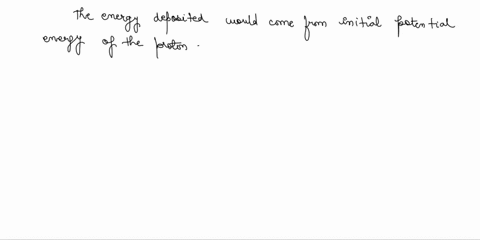 The energy deposited would come from initial potential
energy of the proton.